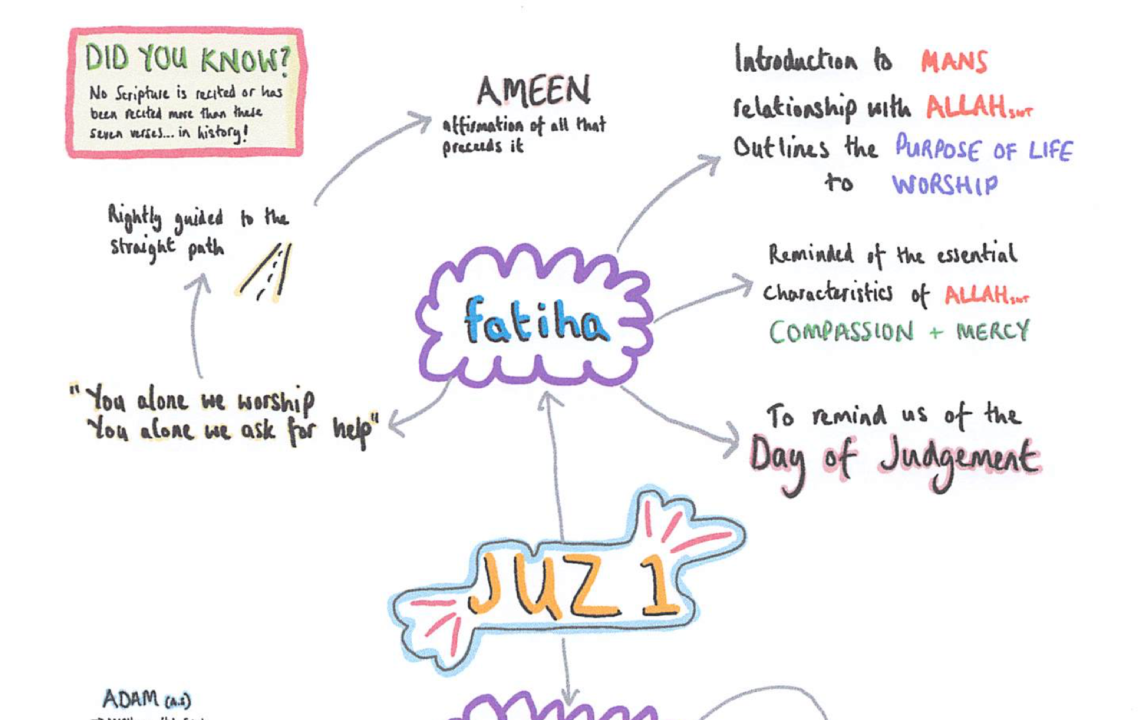 DID YOU KNOW?
No Scripture is recited or has
been recited more than these
seven verses... in history!
AMEEN
affirmation of all that
preceeds it
Introduction to MANS
relationship with ALLAH SWT
Outlines the PURPOSE OF LIFE
to WORSHIP
Rightly guided to the
straight path
fatiha
Reminded of the essential
characteristics of ALLAH SWT
COMPASSION + MERCY
"You alone we worship
You alone we ask for help"
To remind us of the
Day of Judgement
JUZ 1
ADAM (A.S)